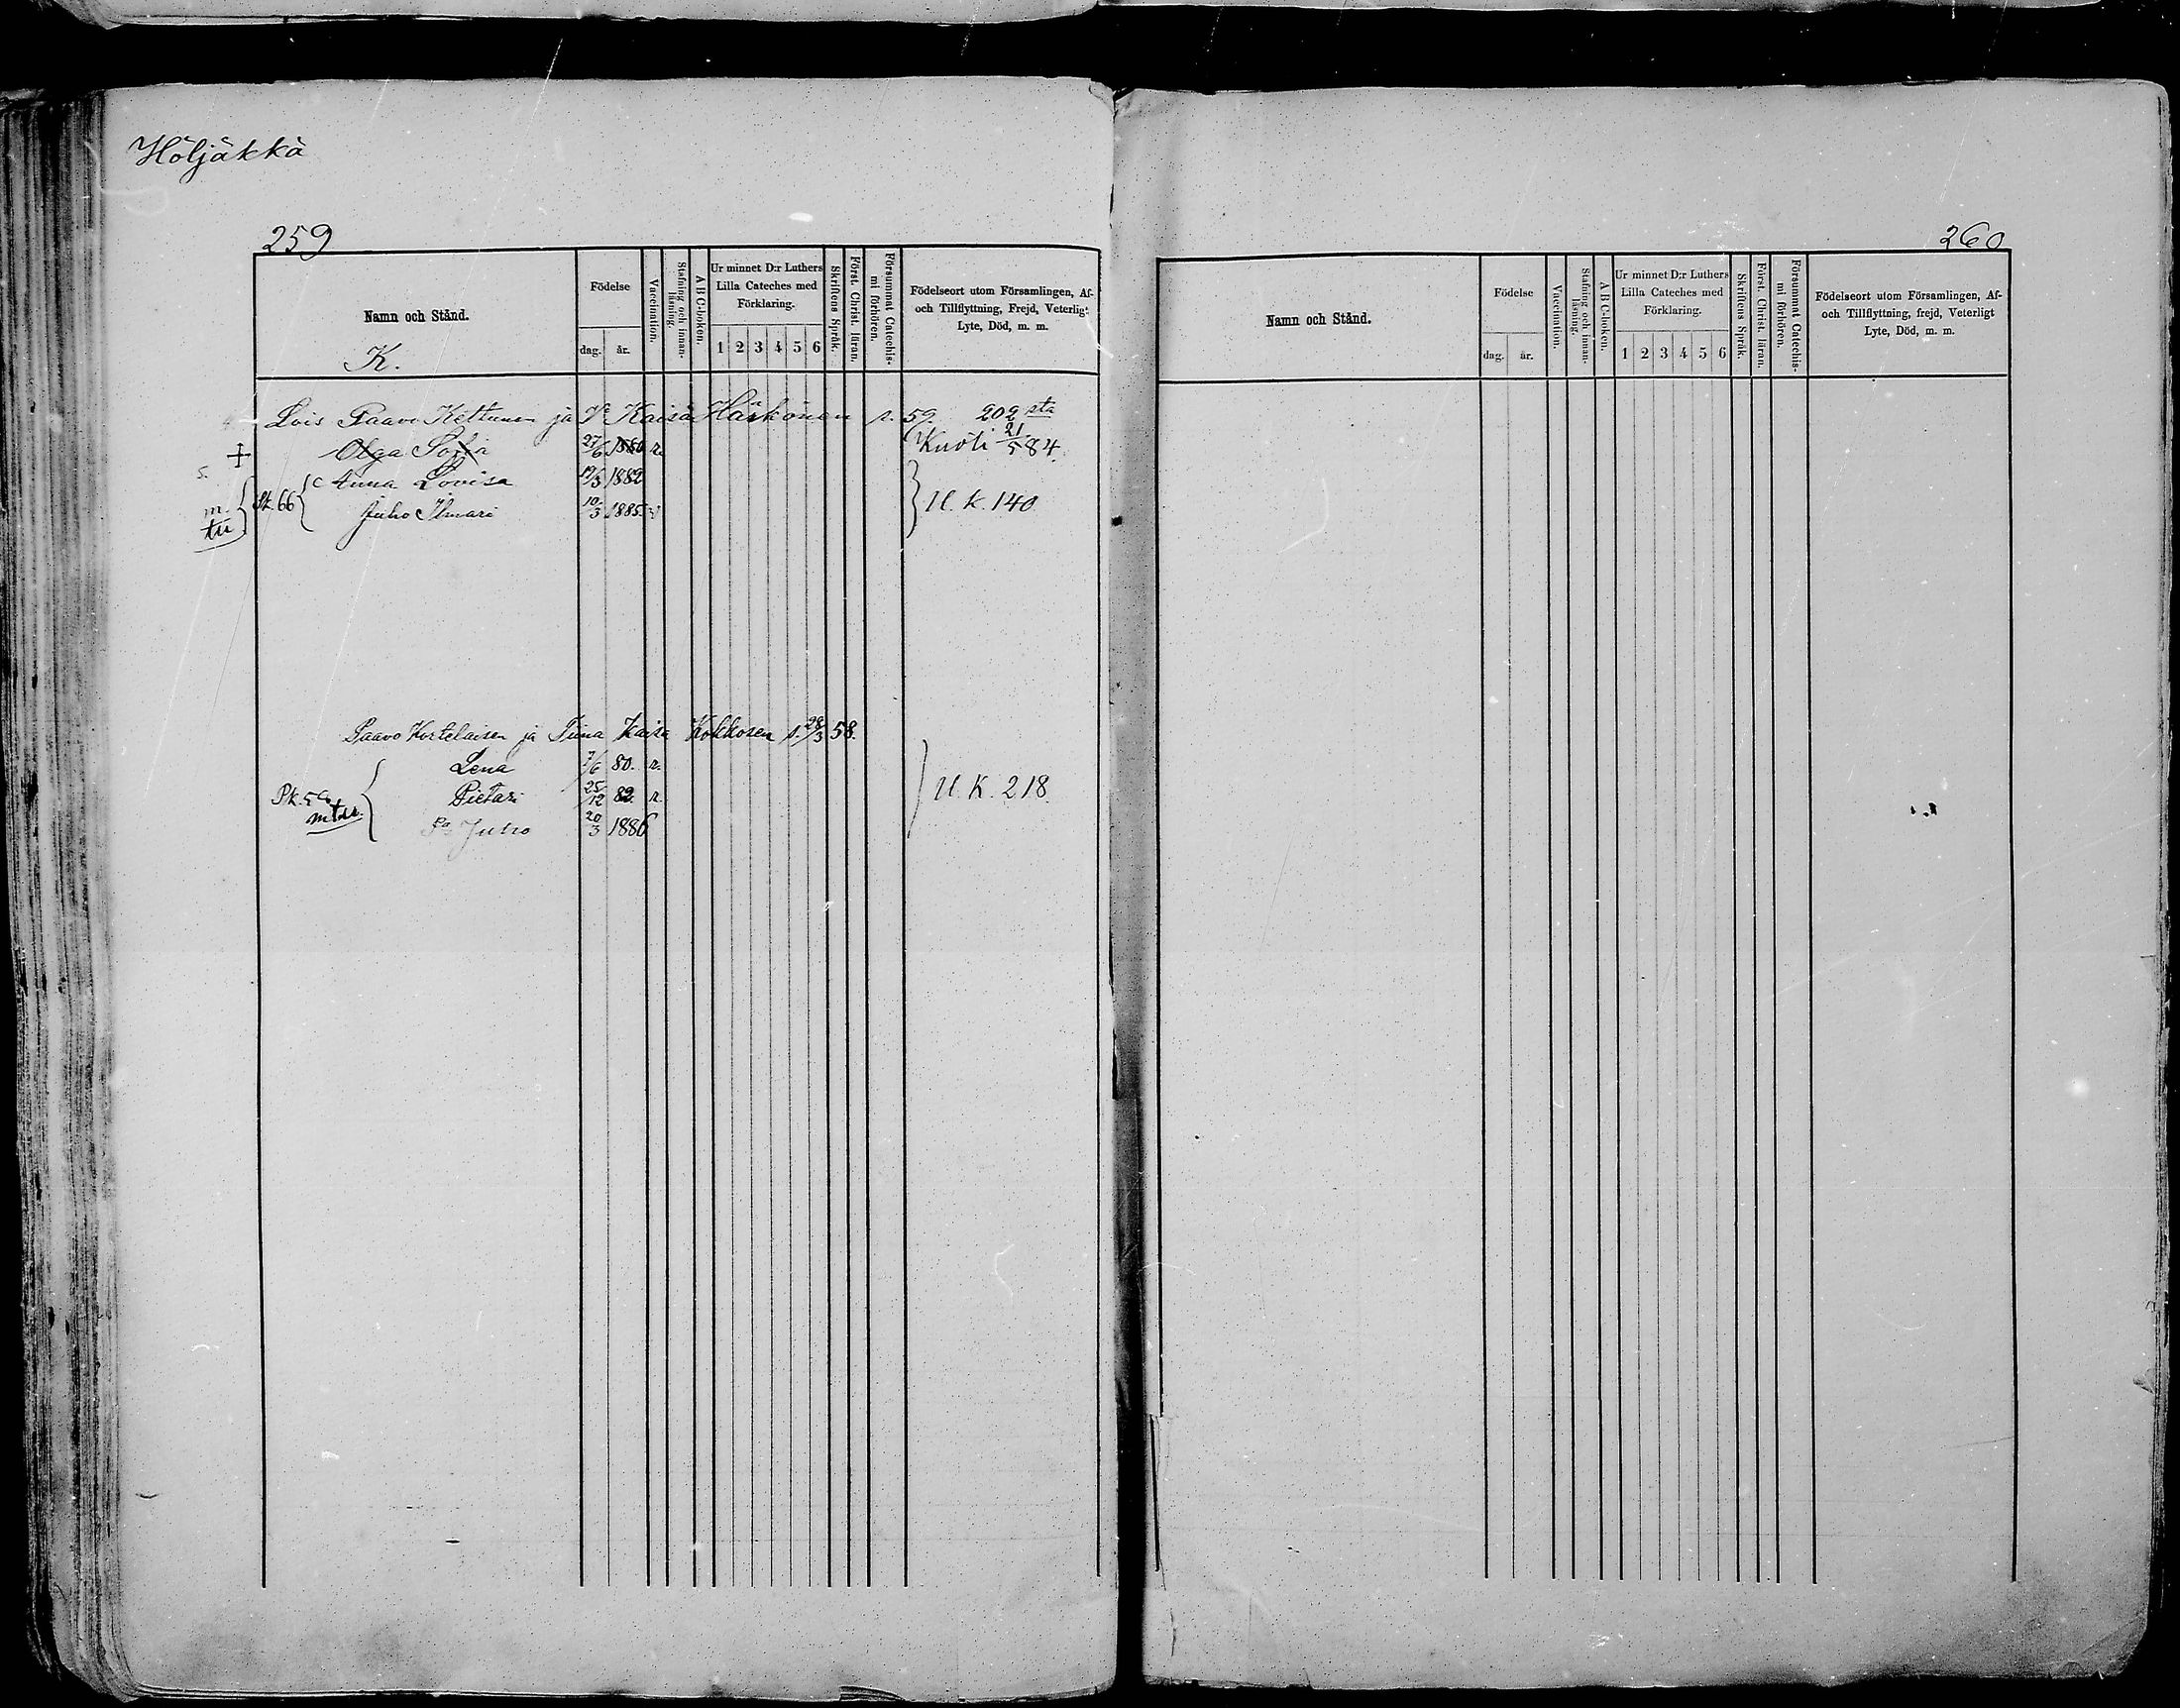 Höljäkkä
259
Namn och Stånd.
K.
Födelse
dag. år.
Vaccination.
Stafning och innan-läsning.
A B C-boken.
Ur minnet D:r Luthers
Lilla Cateches med
Förklaring.
1 2 3 4 5 6
Skriftens Språk.
Först. Christ. läran.
Försummat Catechis-mi förhören.
Födelseort utom Församlingen, Af-
och Tillflyttning, Frejd, Veterligt
Lyte, Död, m. m.
Lois Paavo Kettunen ja Kaisa Härkönen s. 59. 202 sta
Olga Sofia 27/6 1880 r. Kuoli 21/5 84.
Anna Lovisa 12/3 1882
m. tu Pk. 66 Juho Ilmari 10/3 1885. U. K. 140
Paavo Kortelaisen ja Tiina Kaisa Kokkosen s. 28/3 58.
Lena 7/6 80. r.
Pk. Pietari 25/12 82. r. U. K. 218.
Juho 20/3 1886
260
Namn och Stånd.
Födelse
dag. år.
Vaccination.
Stafning och innan-läsning.
A B C-boken.
Ur minnet D:r Luthers
Lilla Cateches med
Förklaring.
1 2 3 4 5 6
Skriftens Språk.
Först. Christ. läran.
Försummat Catechis-mi förhören.
Födelseort utom Församlingen, Af-
och Tillflyttning, frejd, Veterligt
Lyte, Död, m. m.